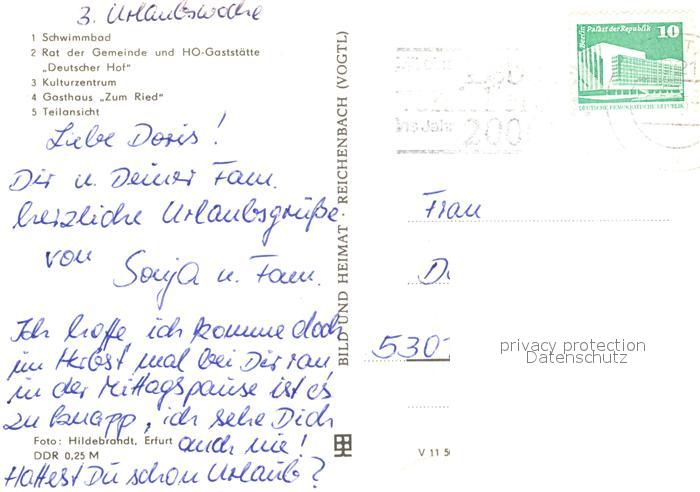 3. Urlaubswoche
1 Schwimmbad
2 Rat der Gemeinde und HO-Gaststätte
„Deutscher Hof"
3 Kulturzentrum
4 Gasthaus „Zum Ried"
5 Teilansicht
Liebe Doris!
Dir u. Deiner Fam.
herzliche Urlaubsgrüße
von
Sonja u. Fam.
Ich hoffe ich komme doch
im Herbst mal bei Dir ran
in der Mittagspause ist es
zu knapp, ich sehe Dich
auch nie!
Hattest Du schon Urlaub?
Foto: Hildebrandt, Erfurt
DDR 0,25 M
BILD UND HEIMAT · REICHENBACH (VOGTL)
V 11 50
ins Jahr
200
Berlin Palast der Republik
10
DEUTSCHE DEMOKRATISCHE REPUBLIK
Frau
D
530
privacy protection
Datenschutz